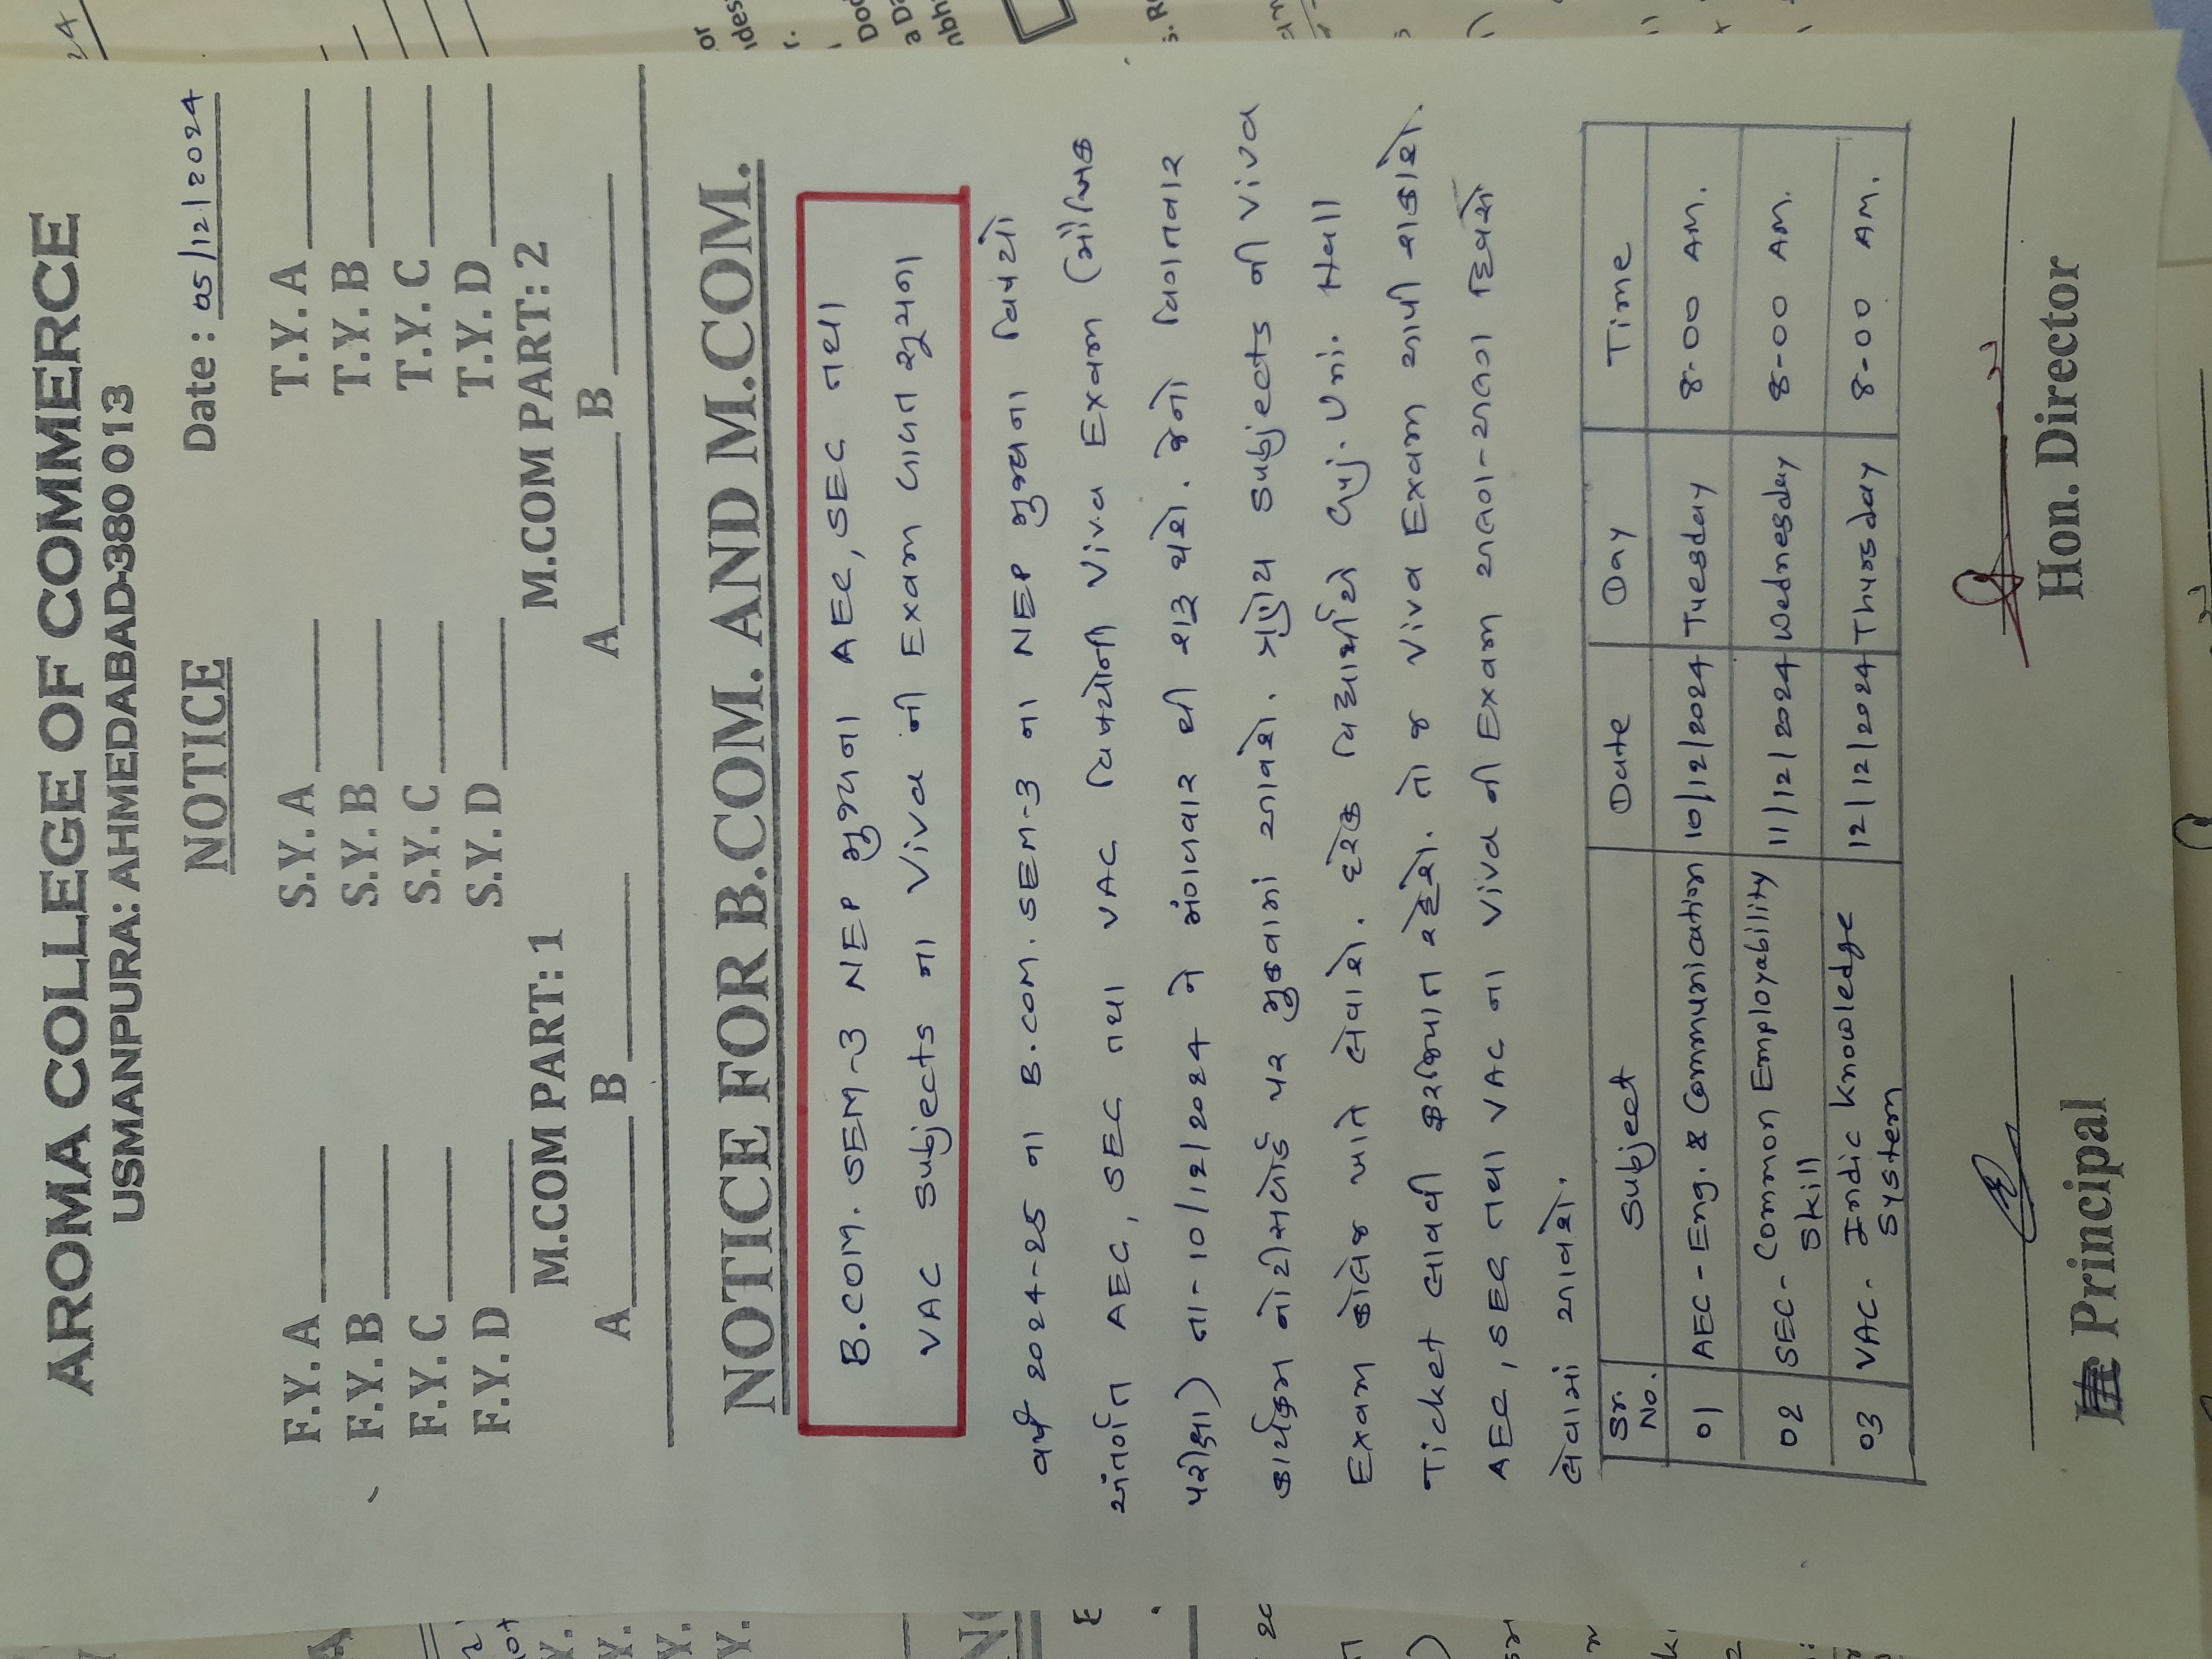 AROMA COLLEGE OF COMMERCE
USMANPURA: AHMEDABAD-380 013
NOTICE
Date: 05/12/2024
F.Y. A S.Y. A T.Y. A
F.Y. B S.Y. B T.Y. B
F.Y. C S.Y. C T.Y. C
F.Y. D S.Y. D T.Y. D
M.COM PART: 1 M.COM PART: 2
A B A B
NOTICE FOR B.COM. AND M.COM.
B.COM. SEM-3 NEP મુજબના AEC, SEC તથા
VAC Subjects ના Viva ની Exam બાબત સૂચના
વર્ષ 2024-25 ના B.COM. SEM-3 ના NEP મુજબના વિષયો
અંતર્ગત AEC, SEC તથા VAC વિષયોની Viva Exam (મૌખિક
પરીક્ષા) તા-10/12/2024 ને મંગળવાર થી શરૂ થશે. જેનો વિગતવાર
કાર્યક્રમ નોટીસબોર્ડ પર મુકવામાં આવશે. ત્રણેય Subjects ની Viva
Exam કોલેજ ખાતે લેવાશે. દરેક વિદ્યાર્થીએ Guj. Uni. Hall
Ticket લાવવી ફરજિયાત રહેશે. તો જ Viva Exam આપી શકાશે.
AEC, SEC તથા VAC ના Viva ની Exam અલગ-અલગ દિવસે
લેવામાં આવશે.
Sr. No. Subject Date Day Time
01 AEC - Eng. & Communication 10/12/2024 Tuesday 8-00 AM.
02 SEC - Common Employability 11/12/2024 Wednesday 8-00 AM.
Skill
03 VAC - Indic Knowledge 12/12/2024 Thursday 8-00 AM.
System
Principal Hon. Director